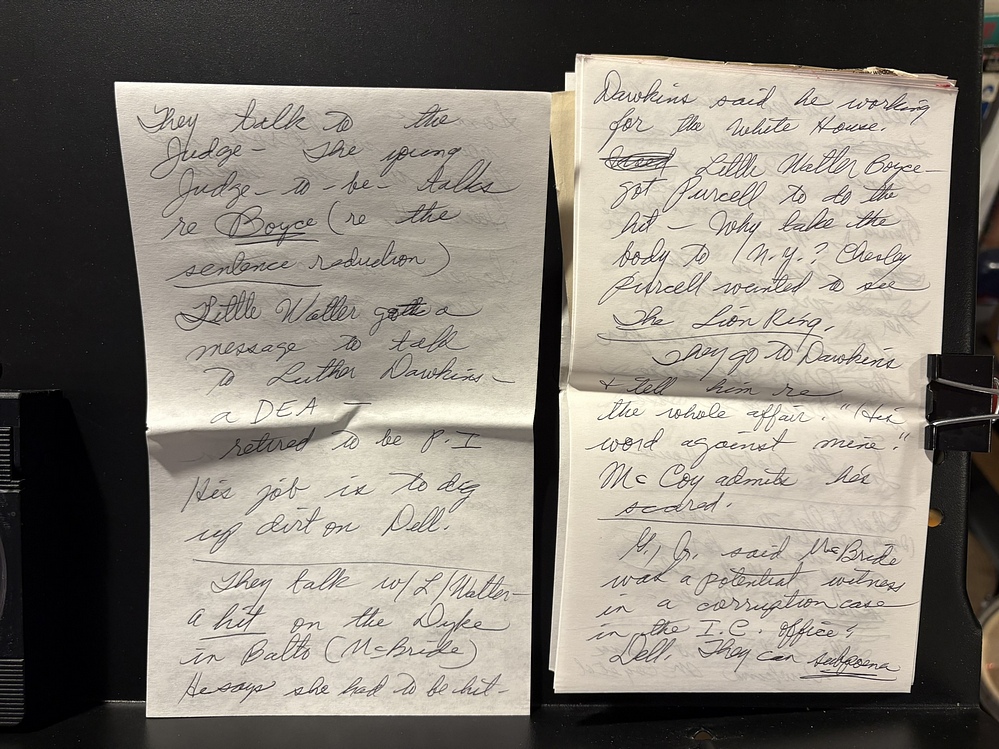 They talk to the
Judge - The young
Judge - to - be - talks
re Boyce (re the
sentence reduction)
Little Walter got a
message to talk
to Luther Dawkins -
a DEA -
retired to be P. I
His job is to dig
up dirt on Dell.
They talk w/ L/Walter -
a hit on the Dyke
in Balto (McBride)
He says she had to be hit -
Dawkins said he working
for the White House.
Little Walter Boyce -
got Purcell to do the
hit - Why take the
body to N.Y.? Chesley
Purcell wanted to see
The Lion King.
They go to Dawkins
& tell him re
the whole affair. "His
word against mine."
McCoy admits he's
scared.
G, Jr. said McBride
was a potential witness
in a corruption case
in the I.C. office;
Dell. They can subpoena